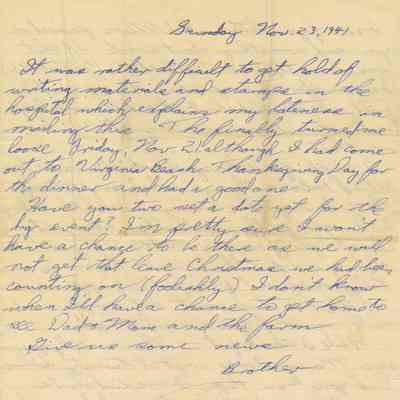 Sunday Nov. 23, 1941
It was rather difficult to get hold of
writing materials and stamps in the
hospital which explains my lateness in
mailing this. The finally turned me
loose Friday, Nov 21 although I had come
out to Virginia Beach Thanksgiving Day for
the dinner and had a good one
Have you two set a date yet for the
big event? I'm pretty sure I won't
have a chance to be there as we will
not get that leave Christmas we had been
counting on (foolishly) I don't know
when I'll have a chance to get home to
see Dad & Mom and the farm
Give us some news
Brother